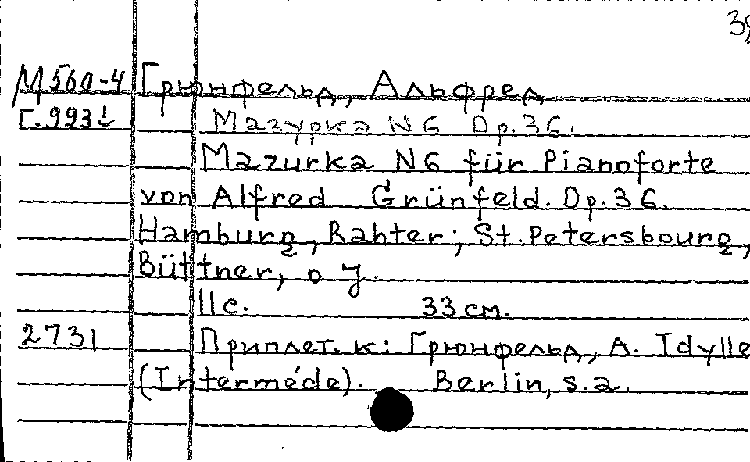 М560-4 Грюнфельд, Альфред
Г.993 Мазурка N6 Op.36.
Mazurka N6 für Pianoforte
von Alfred Grünfeld. Op.36.
Hamburg, Rahter; St.Petersbourg,
Büttner, o J.
11с. 33 см.
2731 Приплет. к: Грюнфельд, А. Idylle
(Interméde). Berlin, s.a.